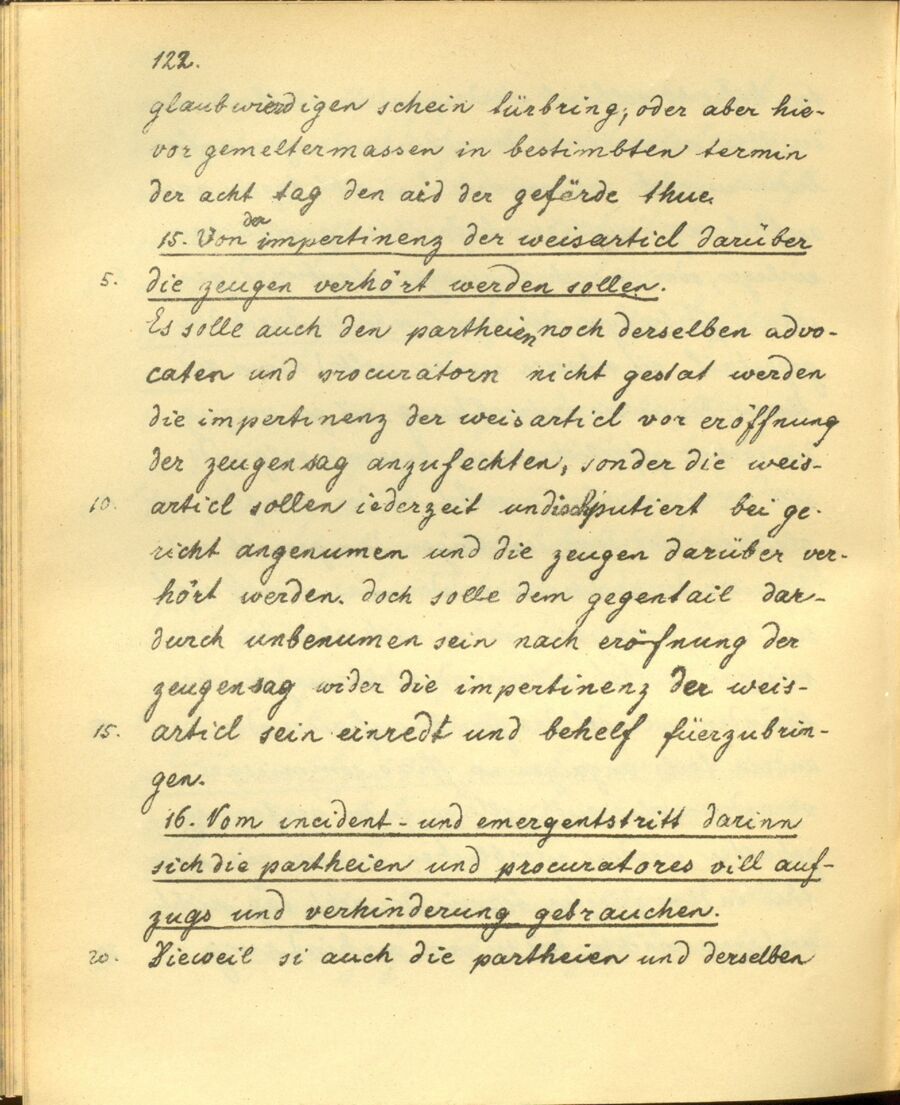 122.
glaubwierdigen schein fürbring, oder aber hie-
vor gemeltermassen in bestimbten termin
der acht tag den aid der geförde thue.
15. Von der impertinenz der weisarticl darüber
5. die zeugen verhört werden sollen.
Es solle auch den partheien noch derselben advo-
caten und procuratorn nicht gestat werden
die impertinenz der weisarticl vor eröffnung
der zeugensag anzufechten, sonder die weis-
10. articl sollen iederzeit undisputiert bei ge-
richt angenumen und die zeugen darüber ver-
hört werden. doch solle dem gegentail dar-
durch unbenumen sein nach eröfnung der
zeugensag wider die impertinenz der weis-
15. articl sein einredt und behelf füerzubrin-
gen.
16. Vom incident- und emergentstritt darinn
sich die partheien und procuratores vill auf-
zugs und verhinderung gebrauchen.
20. Dieweil si auch die partheien und derselben